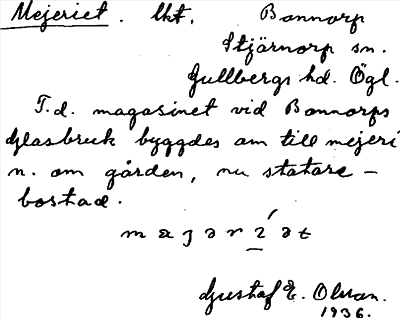 Mejeriet. lht. Bonnorp
Stjärnorp sn.
Gullbergs hd. Ögl.
T.d. magasinet vid Bonnorps
glasbruk byggdes om till mejeri
n. om gården, nu statare-
bostad.
Gustaf E. Olsson.
1936.